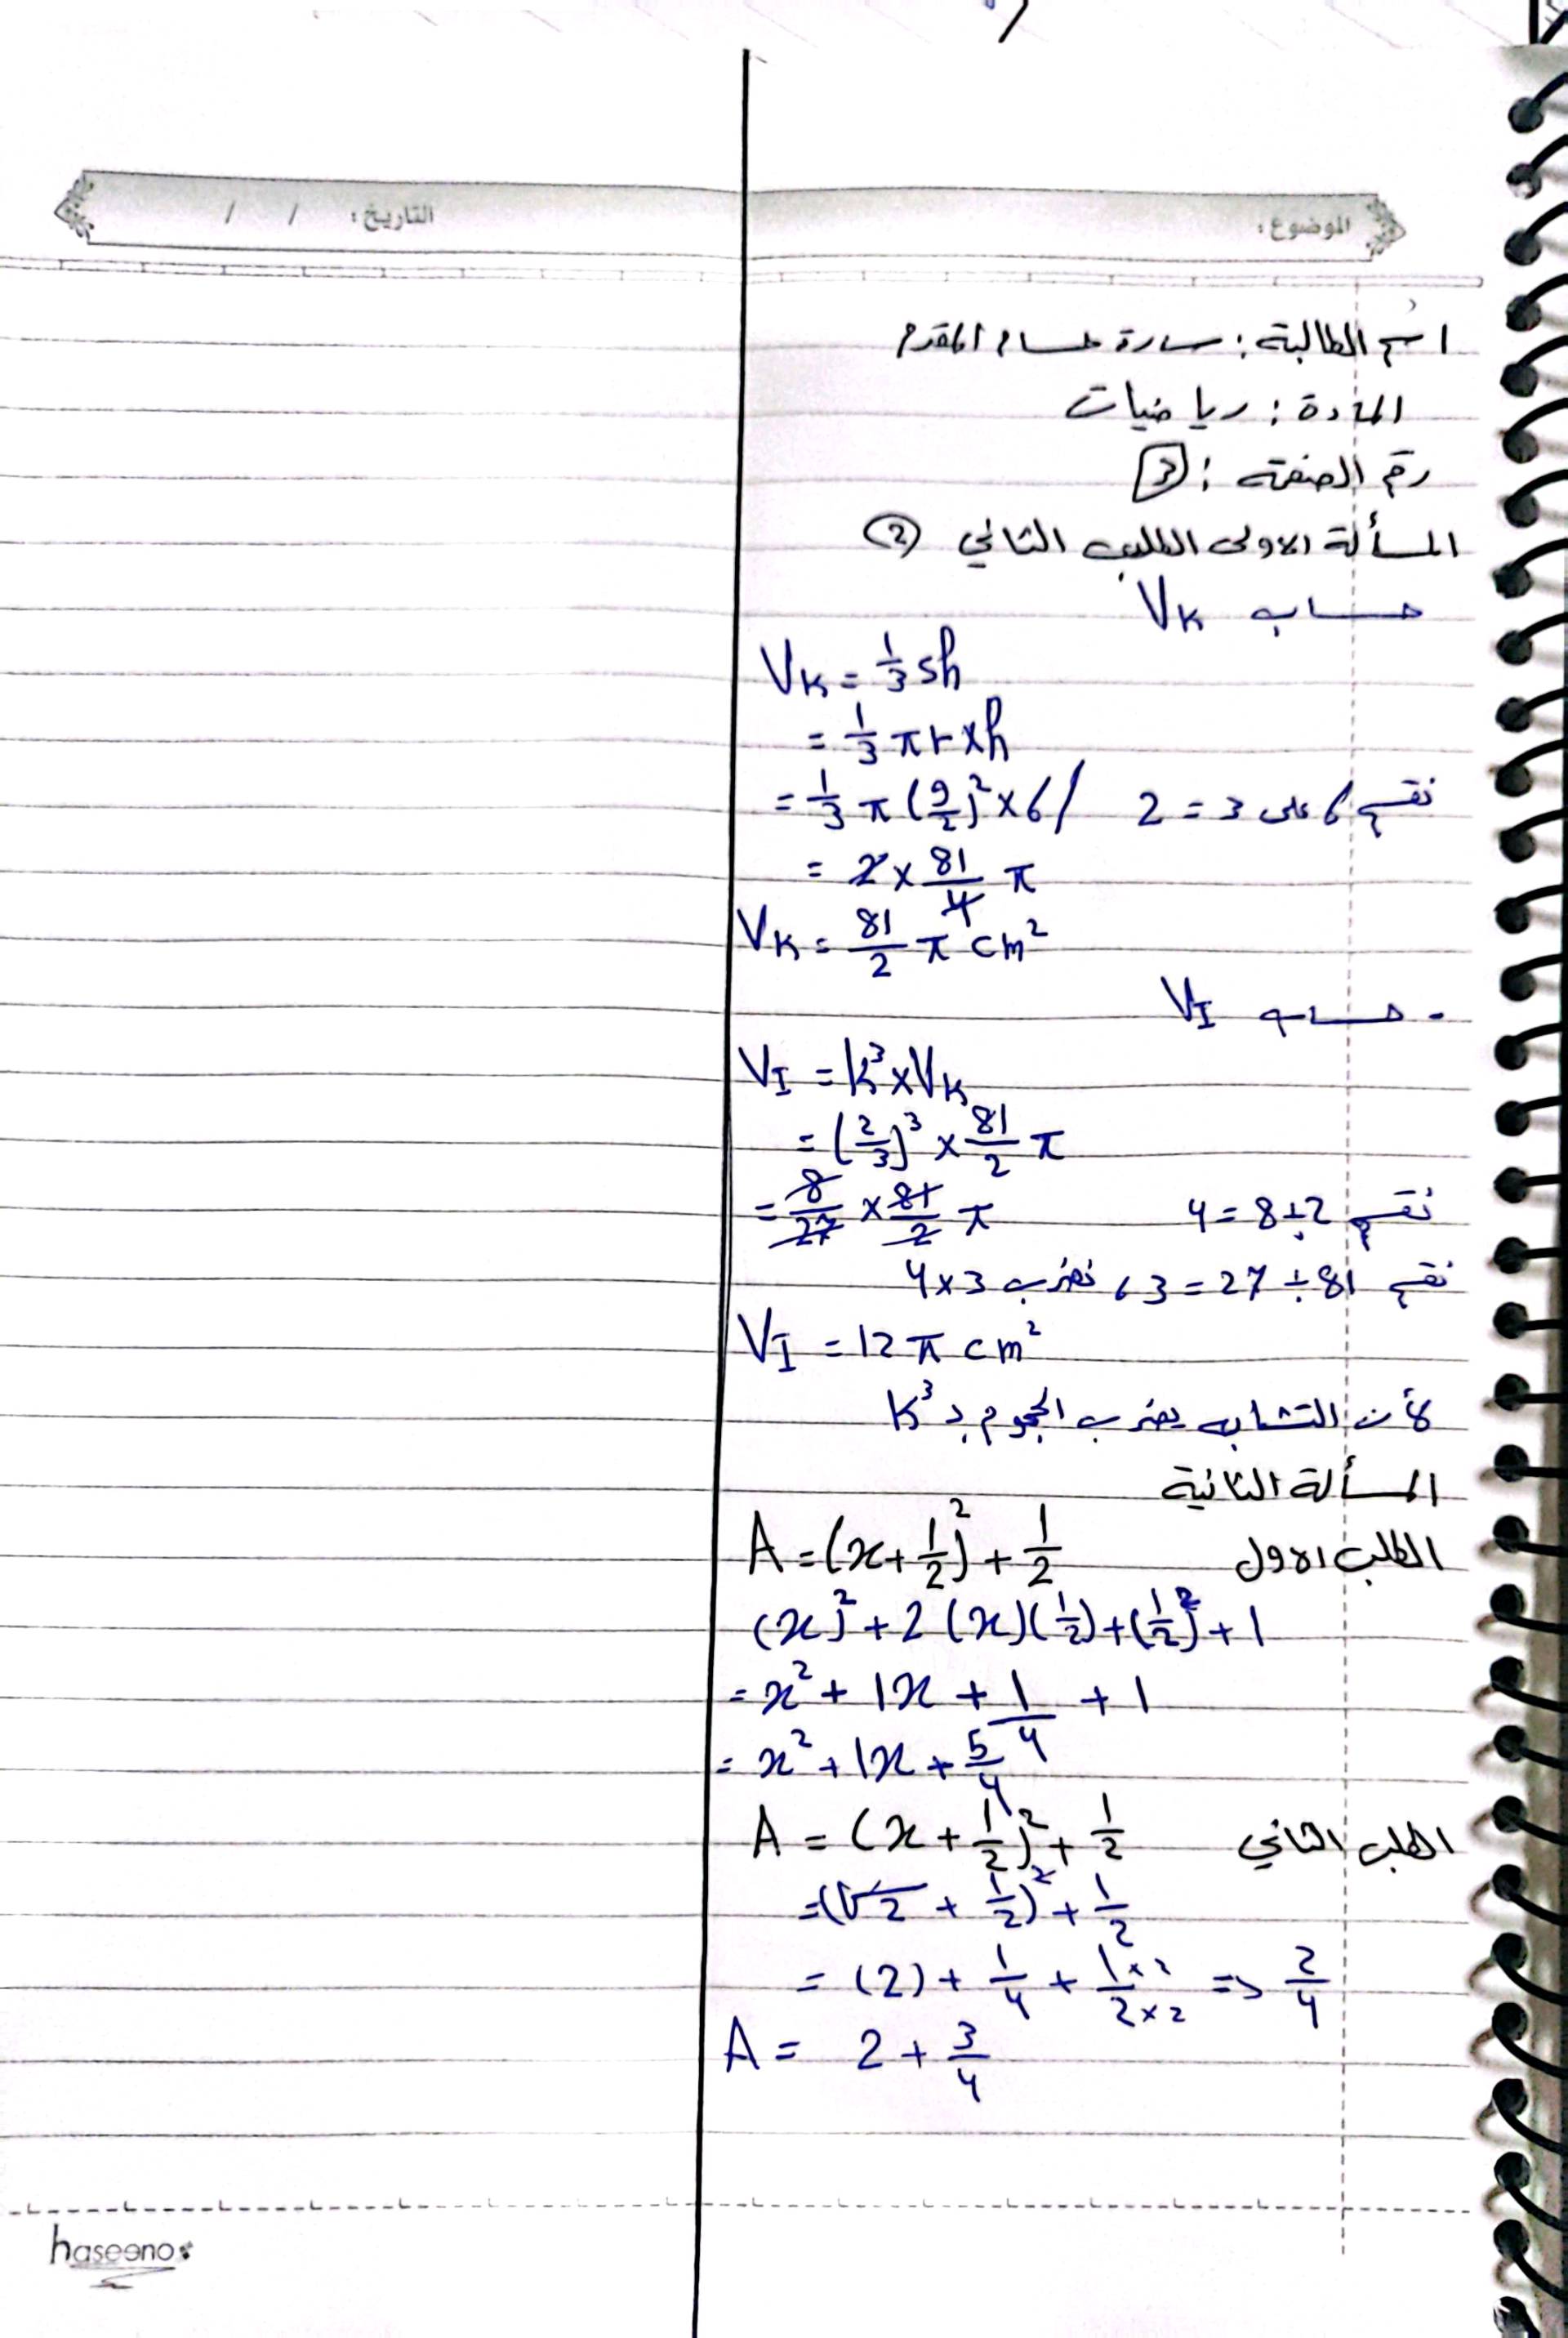 الموضوع: التاريخ: / /
اسم الطالبة: سارة حسام المقدم
المادة: رياضيات
رقم الصفحة: 3
المسألة الاولى الطلب الثاني 2
حساب VK
VK = 1/3 sh
= 1/3 πr×h
= 1/3 π (9/2)² × 6 / نقسم 6 على 3 = 2
= 2 × 81/4 π
VK = 81/2 π cm²
- حساب VI
VI = K³×VK
= (2/3)³ × 81/2 π
= 8/27 × 81/2 π نقسم 2÷8=4
نقسم 81÷27=3، نضرب 3×4
VI = 12 π cm²
لأن التشابه يضرب الحجوم بـ K³
المسألة الثانية
الطلب الاول A = (x+1/2)² + 1/2
(x)² + 2(x)(1/2) + (1/2)² + 1
= x² + 1x + 1/4 + 1
= x² + 1x + 5/4
الطلب الثاني A = (x + 1/2)² + 1/2
= (√2 + 1/2)² + 1/2
= (2) + 1/4 + 1×2/2×2 => 2/4
A = 2 + 3/4
haseeno